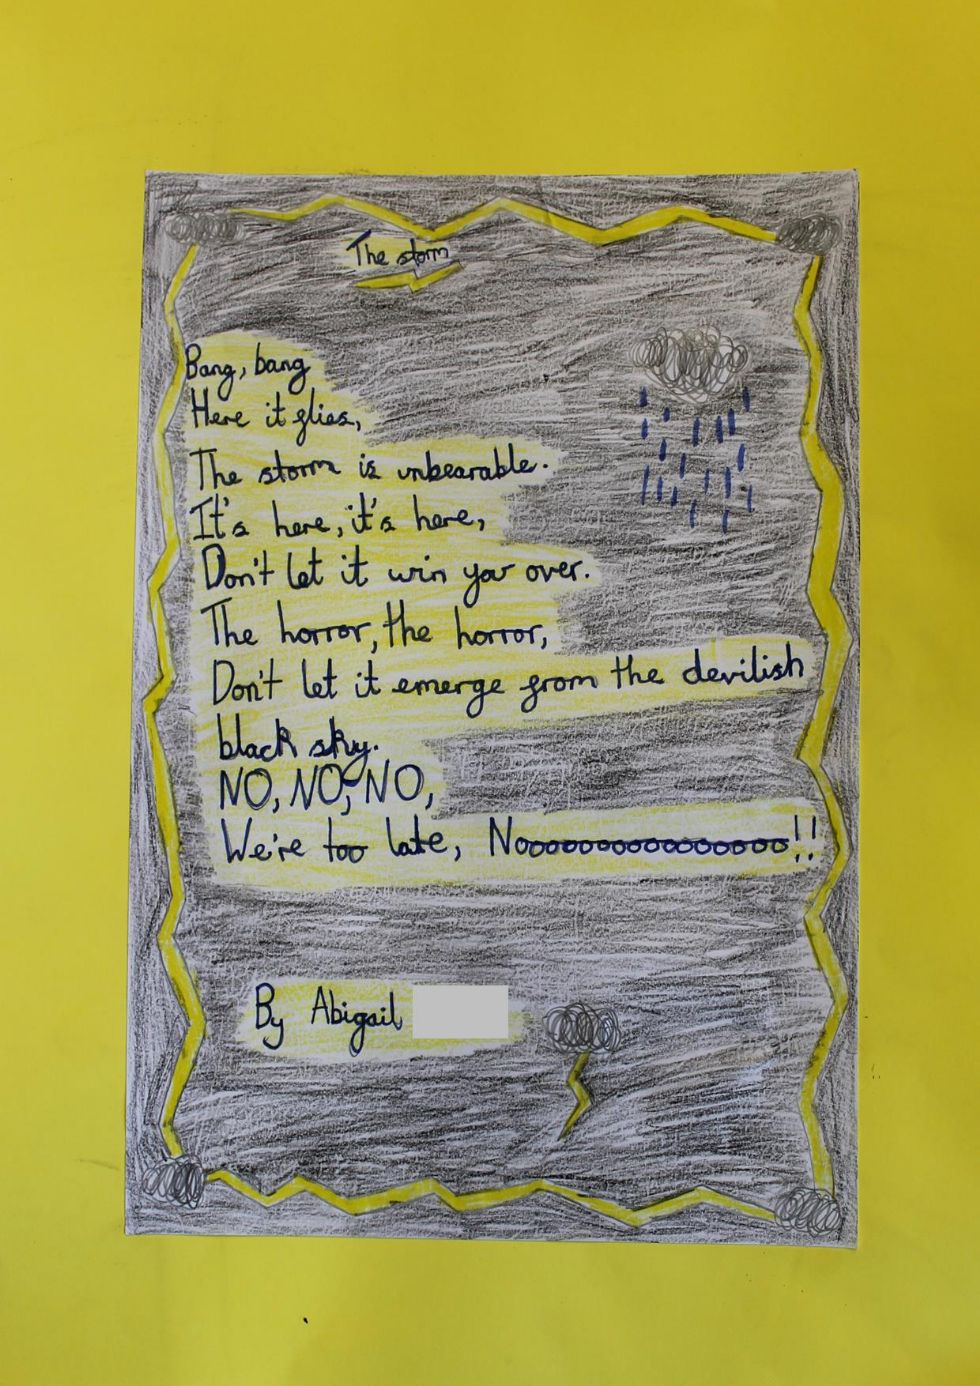 The storm
Bang, bang
Here it flies,
The storm is unbearable.
It's here, it's here,
Don't let it win you over.
The horror, the horror,
Don't let it emerge from the devilish
black sky.
NO, NO, NO,
We're too late, Nooooooooooooooooo!!
By Abigail